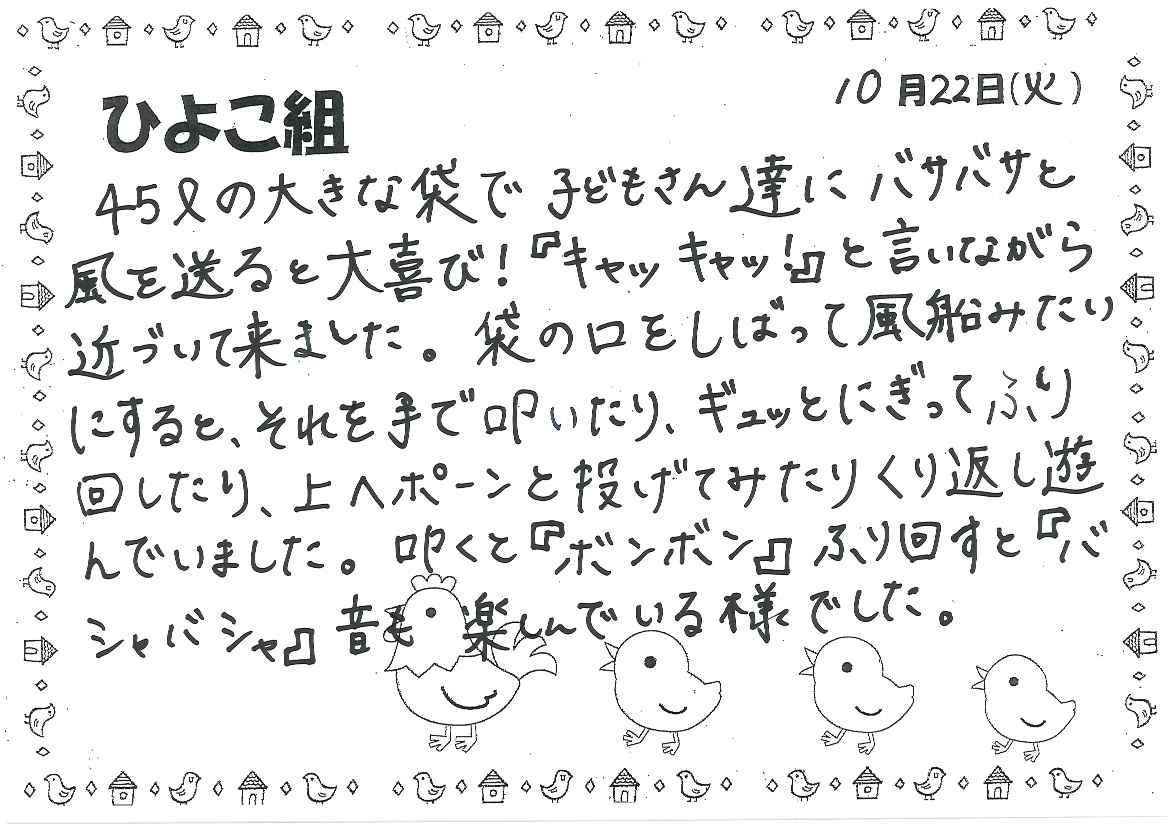 10月22日(火)
ひよこ組
45ℓの大きな袋で 子どもさん達に バサバサと
風を送ると大喜び!『キャッ キャッ!』と言いながら
近づいて来ました。袋の口をしばって風船みたい
にすると、それを手で叩いたり、ギュッとにぎってふり
回したり、上へポーンと投げてみたりくり返し遊
んでいました。叩くと『ボンボン』ふり回すと『バ
シャバシャ』音も楽しんでいる様でした。